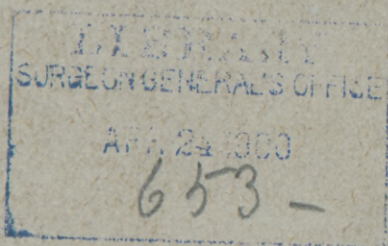 LIBRARY
SURGEON GENERAL'S OFFICE
APR. 24 1900
653-